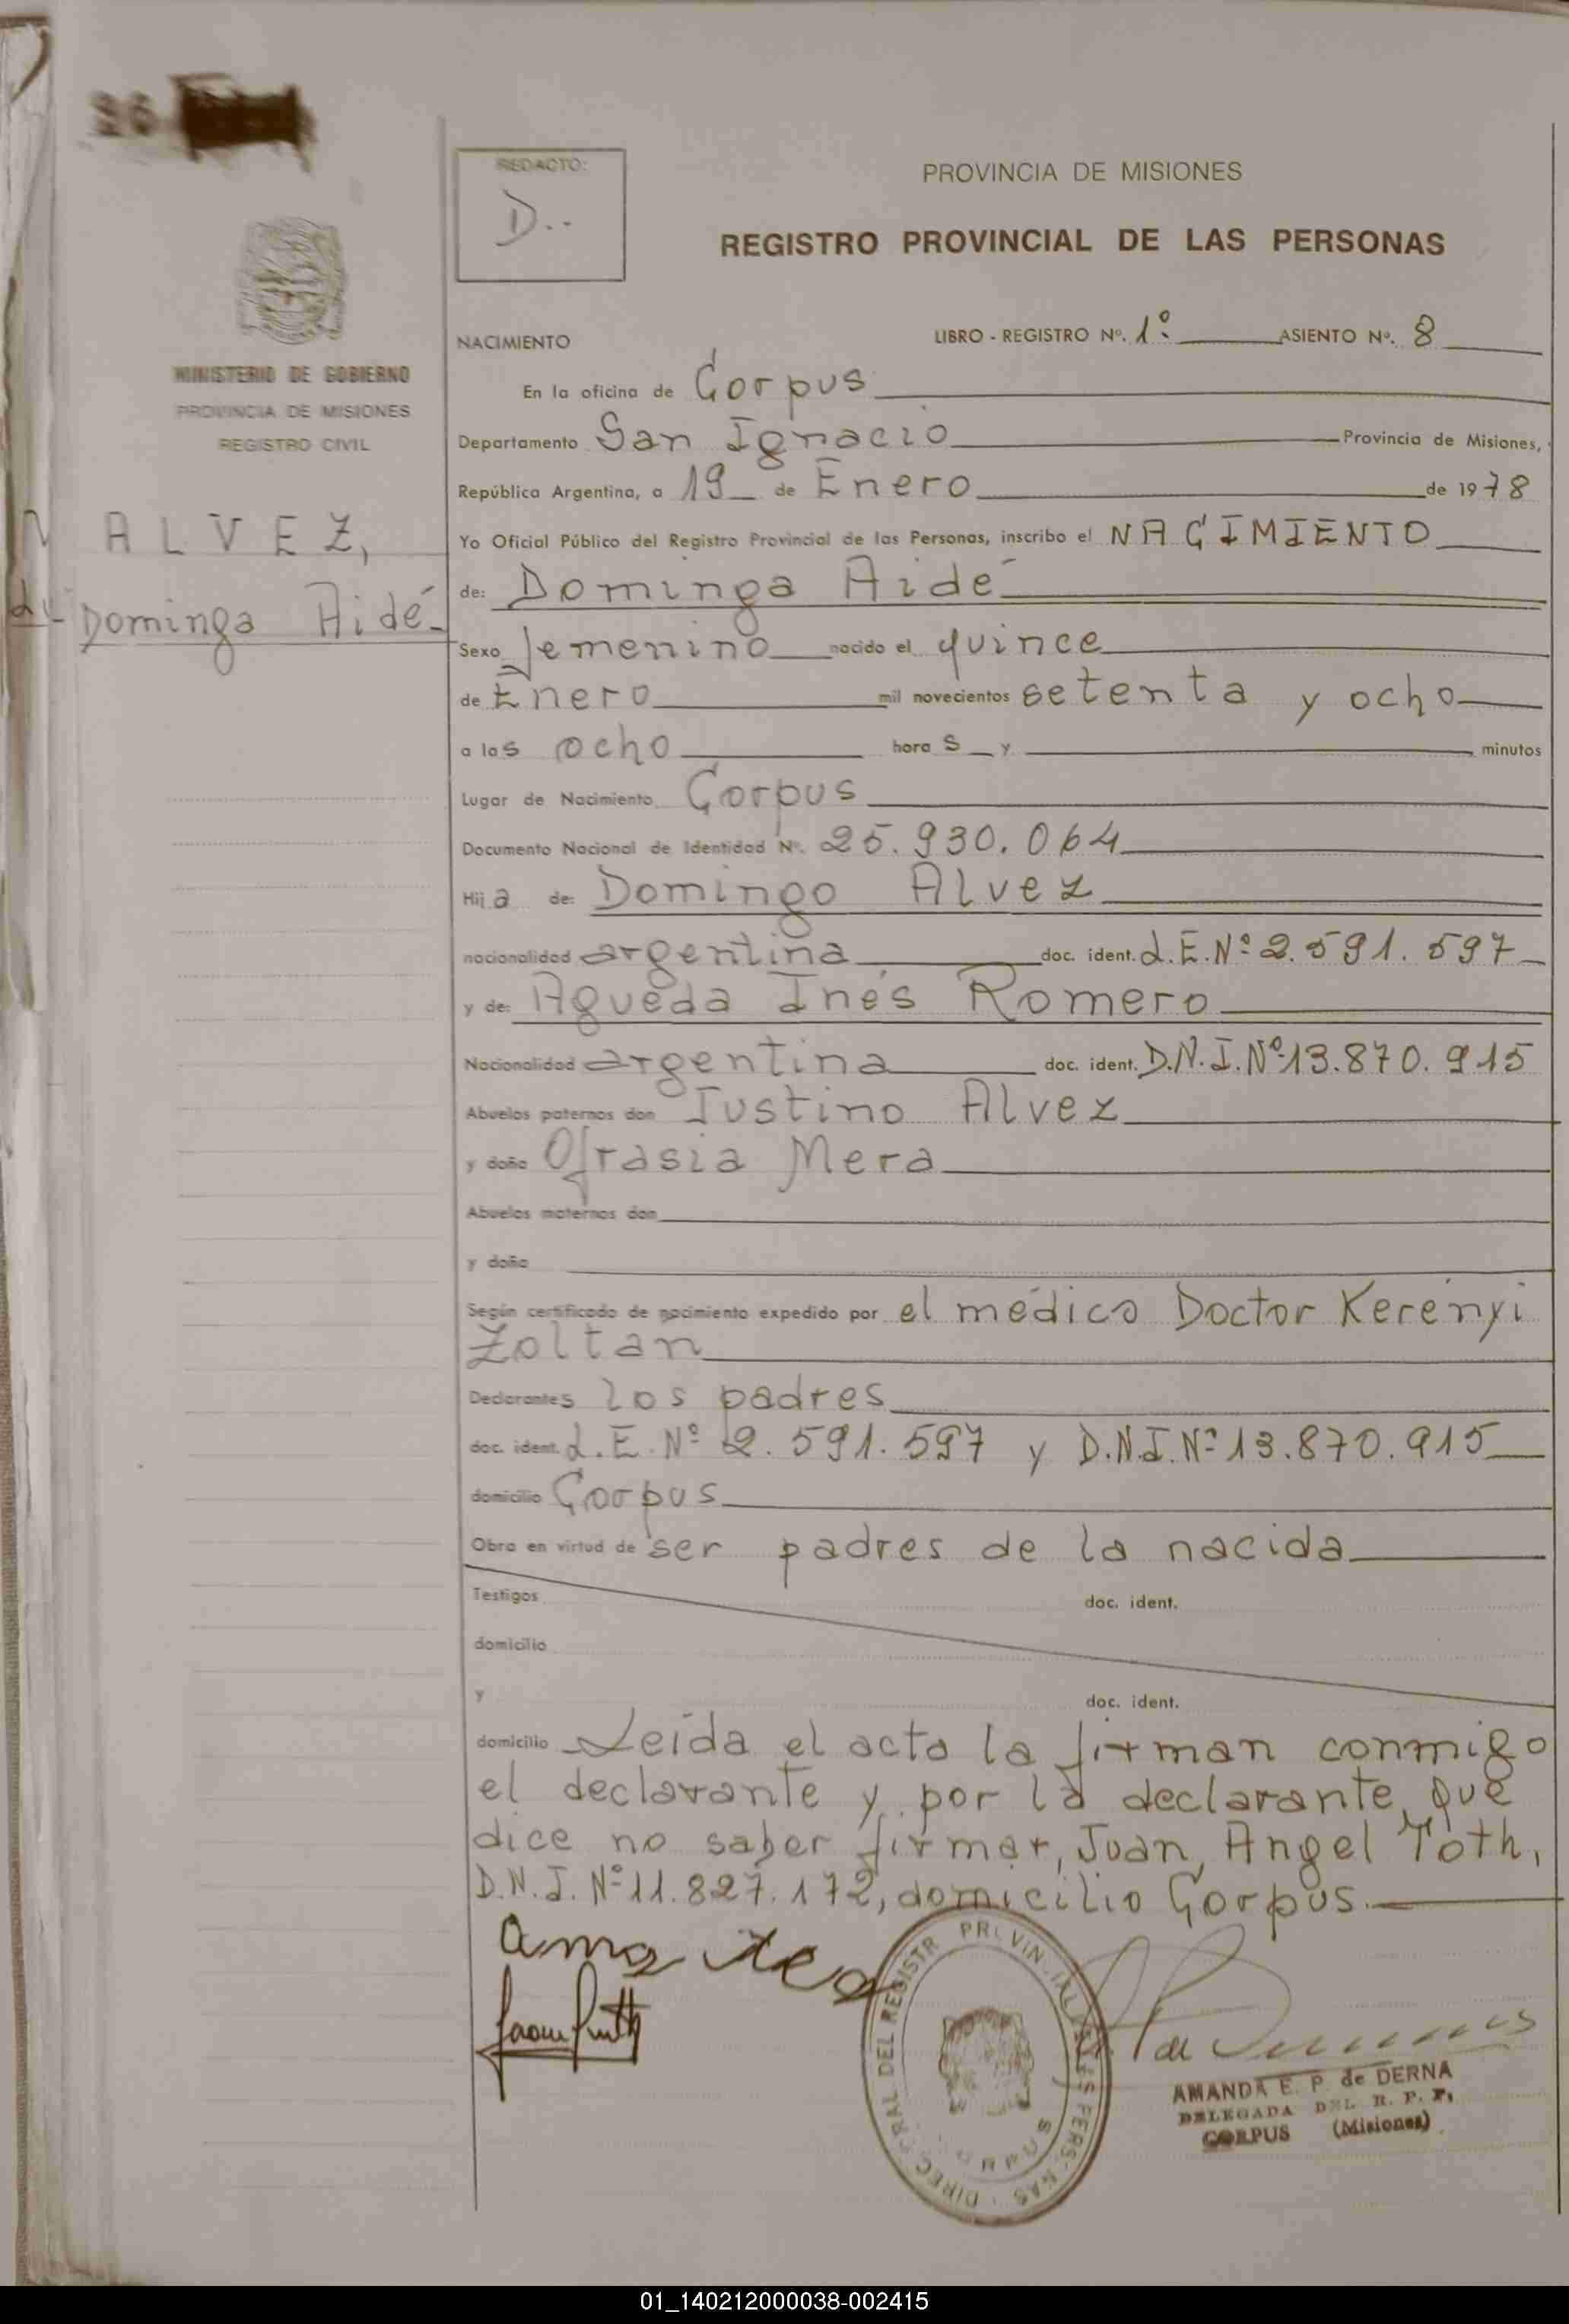 26
REDACTO:
D..
PROVINCIA DE MISIONES
REGISTRO PROVINCIAL DE LAS PERSONAS
MINISTERIO DE GOBIERNO
PROVINCIA DE MISIONES
REGISTRO CIVIL
ALVEZ,
Dominga Aidé
NACIMIENTO
LIBRO - REGISTRO Nº. 1º ASIENTO Nº. 8
En la oficina de Corpus
Departamento San Ignacio Provincia de Misiones,
República Argentina, a 19 de Enero de 1978
Yo Oficial Público del Registro Provincial de las Personas, inscribo el NACIMIENTO
de: Dominga Aidé
Sexo femenino nacido el quince
de Enero mil novecientos setenta y ocho
a las ocho horas y minutos
Lugar de Nacimiento Corpus
Documento Nacional de Identidad Nº. 25.930.064
Hija de: Domingo Alvez
nacionalidad argentina doc. ident. L.E.Nº 2.591.597
y de: Agueda Inés Romero
Nacionalidad argentina doc. ident. D.N.I.Nº 13.870.915
Abuelos paternos don Justino Alvez
y doña Ofrasia Mera
Abuelos maternos don
y doña
Según certificado de nacimiento expedido por el médico Doctor Kerényi
Zoltan
Declarantes los padres
doc. ident. L.E.Nº 2.591.597 y D.N.I.Nº 13.870.915
domicilio Corpus
Obra en virtud de ser padres de la nacida
Testigos doc. ident.
domicilio
y doc. ident.
domicilio Leída el acta la firman conmigo
el declarante y por la declarante, que
dice no saber firmar, Juan Angel Toth,
D.N.I.Nº 11.827.172, domicilio Corpus.
AMANDA E. P. de DERNA
DELEGADA DEL R. P. P.
CORPUS (Misiones)
01_140212000038-002415